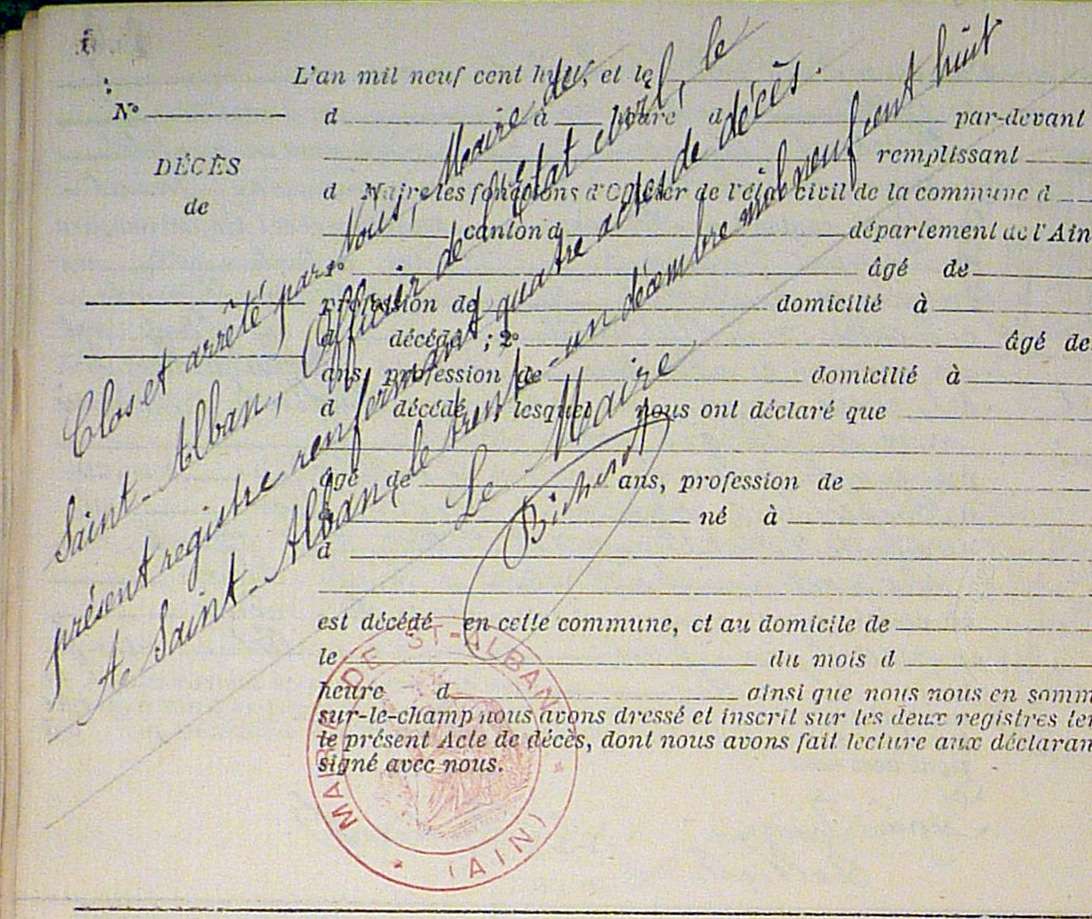 L'an mil neuf cent huit, et le
N°
d à heure d par-devant
DÉCÈS
remplissant
de
d Maire les fonctions d'Officier de l'état civil de la commune d
canton d département de l'Ain
1° âgé de
profession de domicilié à
d décédé ; 2° âgé de
ans, profession de domicilié à
d décédé, lesquels nous ont déclaré que
âgé de ans, profession de
né à
d
est décédé en cette commune, et au domicile de
le du mois d
heure d ainsi que nous nous en somm
sur-le-champ nous avons dressé et inscrit sur les deux registres
le présent Acte de décès, dont nous avons fait lecture aux déclaran
signé avec nous.
Clos et arrêté par Nous, Maire de
Saint-Alban, Officier de l'Etat civil, le
présent registre renfermant quatre actes de décès.
A Saint-Alban, le trente-un décembre mil neuf cent huit
Le Maire
MAIRIE DE ST-ALBAN
* (AIN) *